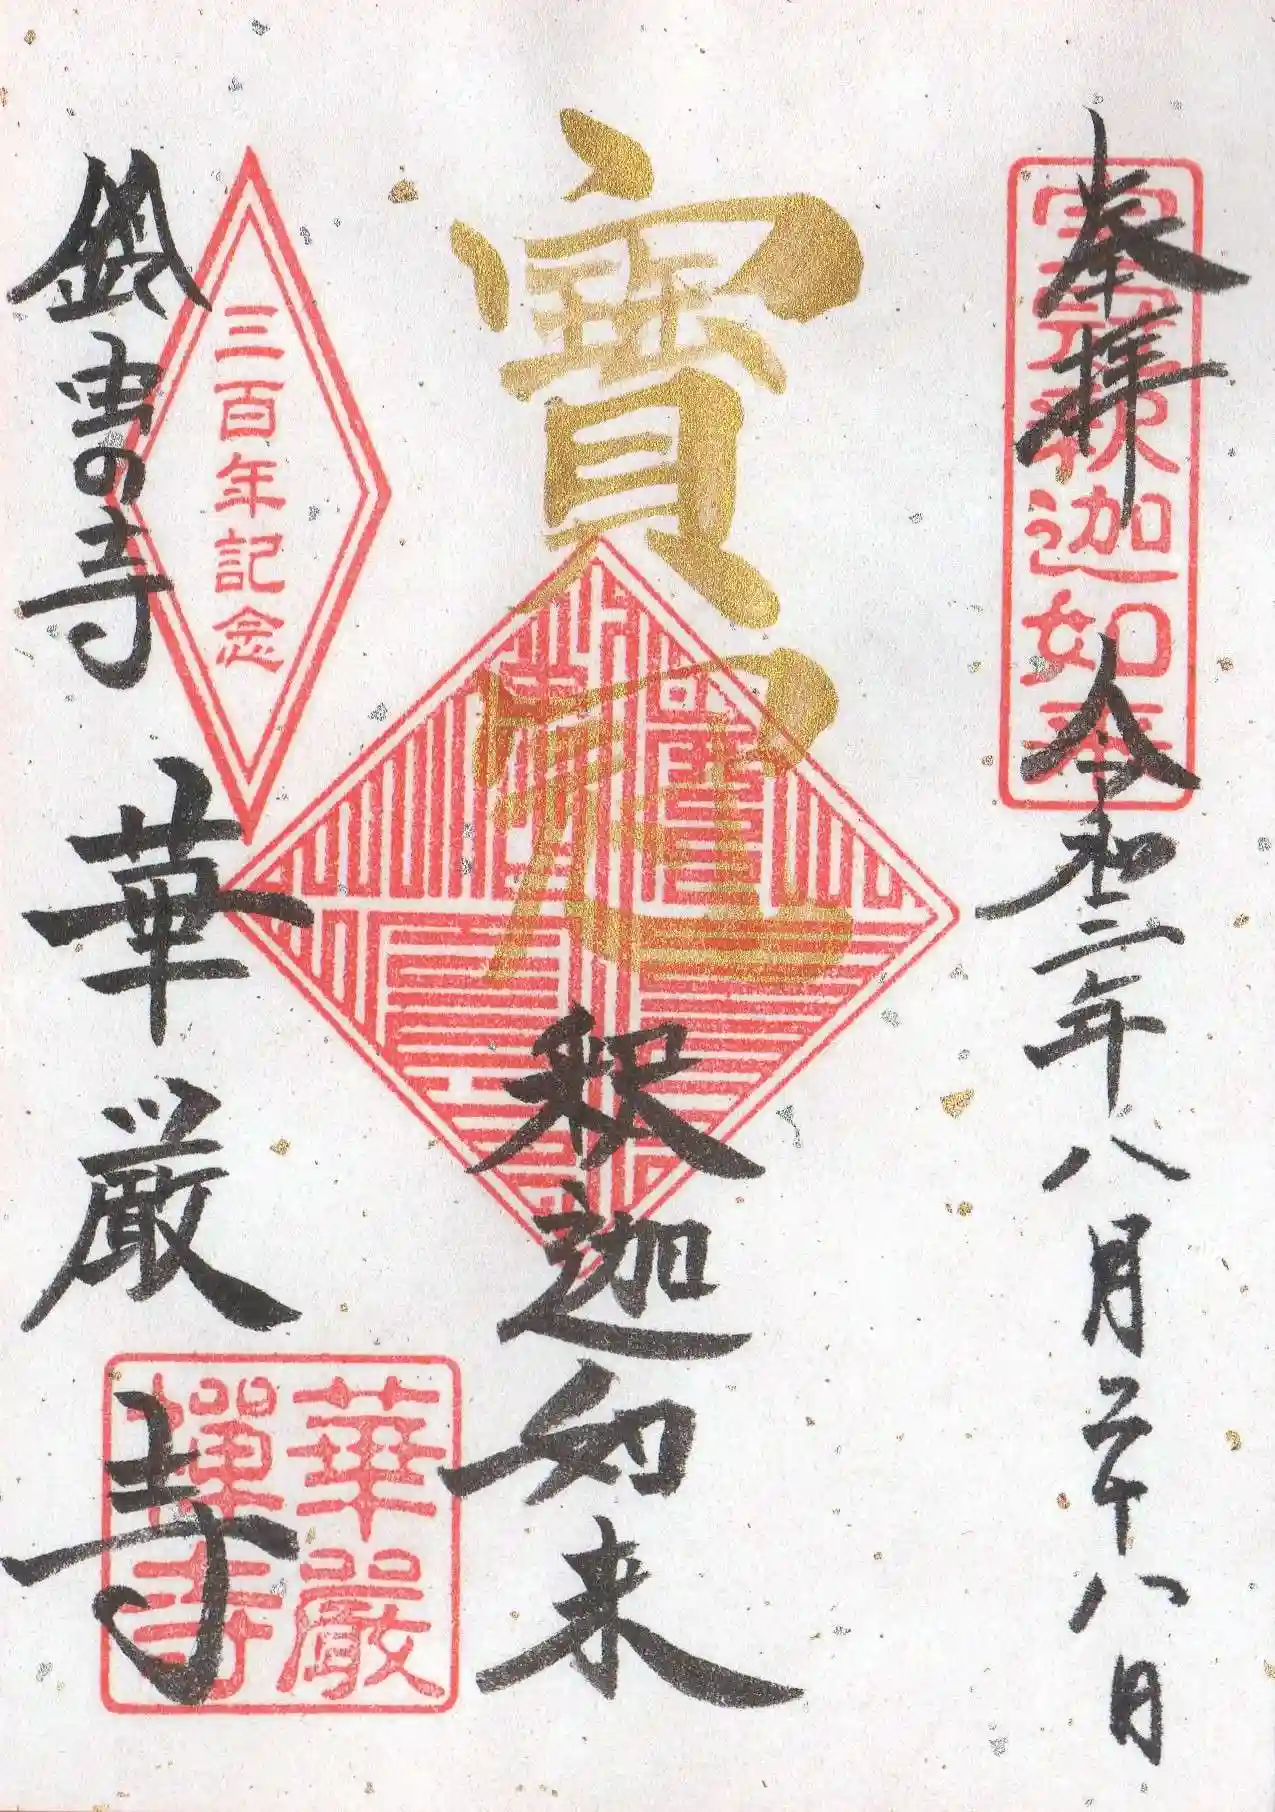 奉拝
令和三年八月二十八日
寳冠
釈迦如来
三百年記念
鈴虫の寺
華厳寺
寳冠釈迦如来
華嚴禅寺